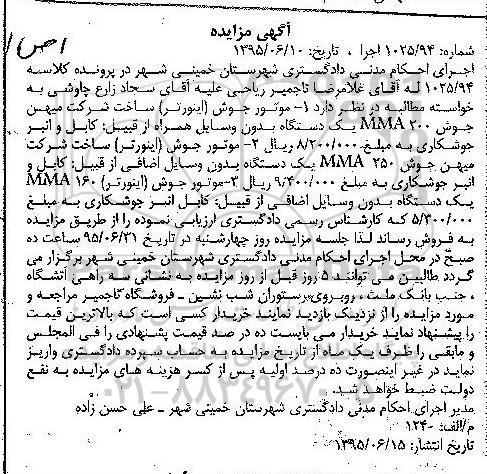 آگهی مزایده
شماره: ۱۰۲۵/۹۴ اجرا ، تاریخ: ۱۳۹۵/۰۶/۱۰
اجرای احکام مدنی دادگستری شهرستان خمینی شهر در پرونده کلاسه
۱۰۲۵/۹۴ له آقای غلامرضا تاجمیر ریاحی علیه آقای سجاد زارع چاوشی به
خواسته مطالبه در نظر دارد ۱- موتور جوش (اینورتر) ساخت شرکت میهن
جوش ۲۰۰ MMA یک دستگاه بدون وسایل همراه از قبیل: کابل و انبر
جوشکاری به مبلغ ۸/۲۰۰/۰۰۰ ریال ۲- موتور جوش (اینورتر) ساخت شرکت
میهن جوش ۲۵۰ MMA یک دستگاه بدون وسایل اضافی از قبیل: کابل و
انبر جوشکاری به مبلغ ۹/۴۰۰/۰۰۰ ریال ۳-موتور جوش (اینورتر) ۱۶۰ MMA
یک دستگاه بدون وسایل اضافی از قبیل: کابل انبر جوشکاری به مبلغ
۵/۳۰۰/۰۰۰ که کارشناس رسمی دادگستری ارزیابی نموده را از طریق مزایده
به فروش رساند لذا جلسه مزایده روز چهارشنبه در تاریخ ۹۵/۰۶/۳۱ ساعت ده
صبح در محل اجرای احکام مدنی دادگستری شهرستان خمینی شهر برگزار می
گردد طالبین می توانند ۵ روز قبل از روز مزایده به نشانی سه راهی آتشگاه
، جنب بانک ملت ، روبروی رستوران شب نشین ـ فروشگاه تاجمیر مراجعه و
مورد مزایده را از نزدیک بازدید نمایند خریدار کسی است که بالاترین قیمت
را پیشنهاد نماید خریدار می بایست ده در صد قیمت پشنهادی را فی المجلس
و مابقی را ظرف یک ماه از تاریخ مزایده به حساب سپرده دادگستری واریز
نماید در غیر اینصورت ده درصد اولیه پس از کسر هزینه های مزایده به نفع
دولت ضبط خواهد شد.
مدیر اجرای احکام مدنی دادگستری شهرستان خمینی شهر ـ علی حسن زاده
م/الف: ۱۲۴۰
تاریخ انتشار: ۱۳۹۵/۰۶/۱۵
۰۲۱-۸۸۳۴۹۶۷۰-۵